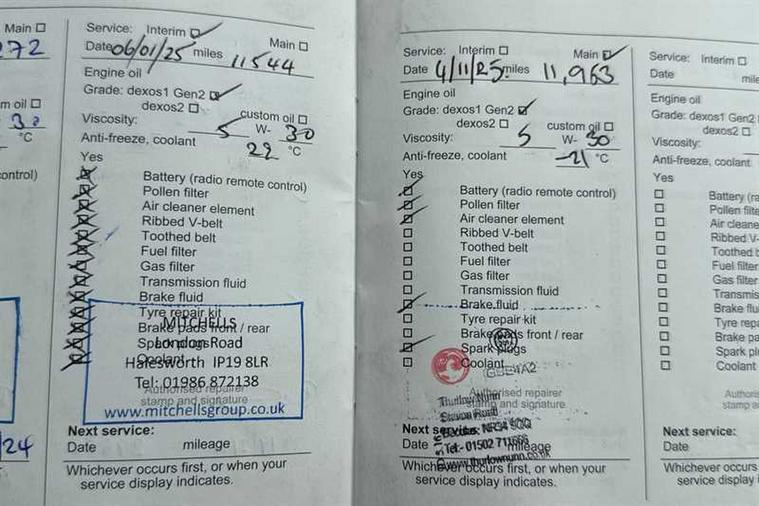 Main
272
m oil
30
°C
ontrol)
/24
Service: Interim
Main
Date 06/01/25 miles 11544
Engine oil
Grade: dexos1 Gen2
dexos2
custom oil
Viscosity: 5 W- 30
Anti-freeze, coolant 22 °C
Yes
Battery (radio remote control)
Pollen filter
Air cleaner element
Ribbed V-belt
Toothed belt
Fuel filter
Gas filter
Transmission fluid
Brake fluid
Tyre repair kit
Brake pads front / rear
Spark plugs
Coolant
MITCHELLS
London Road
Halesworth IP19 8LR
Tel: 01986 872138
Authorised repairer
stamp and signature
www.mitchellsgroup.co.uk
Next service:
Date mileage
Whichever occurs first, or when your
service display indicates.
Service: Interim Main
Date 4/11/25 miles 11,963
Engine oil
Grade: dexos1 Gen2
dexos2 custom oil
Viscosity: 5 W- 30
Anti-freeze, coolant -21 °C
Yes
Battery (radio remote control)
Pollen filter
Air cleaner element
Ribbed V-belt
Toothed belt
Fuel filter
Gas filter
Transmission fluid
Brake fluid
Tyre repair kit
Brake pads front / rear
Spark plugs
Coolant
Authorised repairer
stamp and signature
Thurlow Nunn
Road
NR34 9QQ
Tel:- 01502 711666
www.thurlownunn.co.uk
Next service:
Date mileage
Whichever occurs first, or when your
service display indicates.
Service: Interim
Date mile
Engine oil
Grade: dexos1 Gen2
dexos2
Viscosity:
Anti-freeze, coolant
Yes
Battery (ra
Pollen filte
Air cleane
Ribbed V-
Toothed b
Fuel filter
Gas filter
Transmis
Brake flu
Tyre repa
Brake pa
Spark pl
Coolant
Authoris
stamp a
Next service:
Date
Whichever occurs
service display